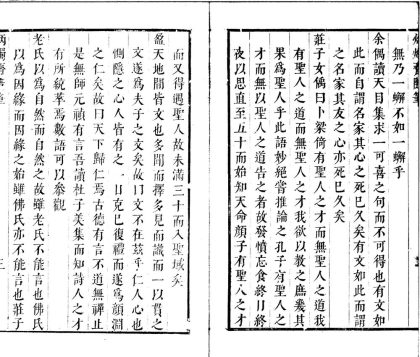 無乃一蠏不如一蠏乎
余偶讀天目集求一可喜之句而不可得也有文如
此而自謂名家其心之死已久矣有文如此而謂
之名家其友之心亦死已久矣
莊子女偊曰卜梁倚有聖人之才而無聖人之道我
有聖人之道而無聖人之才我欲以教之庶幾其
果爲聖人乎此語妙絕嘗推論之孔子有聖人之
才而無以聖人之道告之者故發憤忘食終日終
夜以思直至五十而始知天命顏子有聖人之才
而又得遇聖人故未滿三十而入聖域矣
盈天地間皆文也多聞而擇多見而識而一以貫之
文遂爲夫子之文矣故曰文不在茲乎仁人心也
惻隱之心人皆有之一日克已復禮而遂爲顏淵
之仁矣故曰天下歸仁焉古德有言不道無禪止
是無師元稹有言吾讀杜子美集而知詩人之才
有所統萃焉數語可以參觀
老氏以爲自然而自然之故雖老氏不能言也佛氏
以爲因緣而因緣之始雖佛氏亦不能言也莊子
三